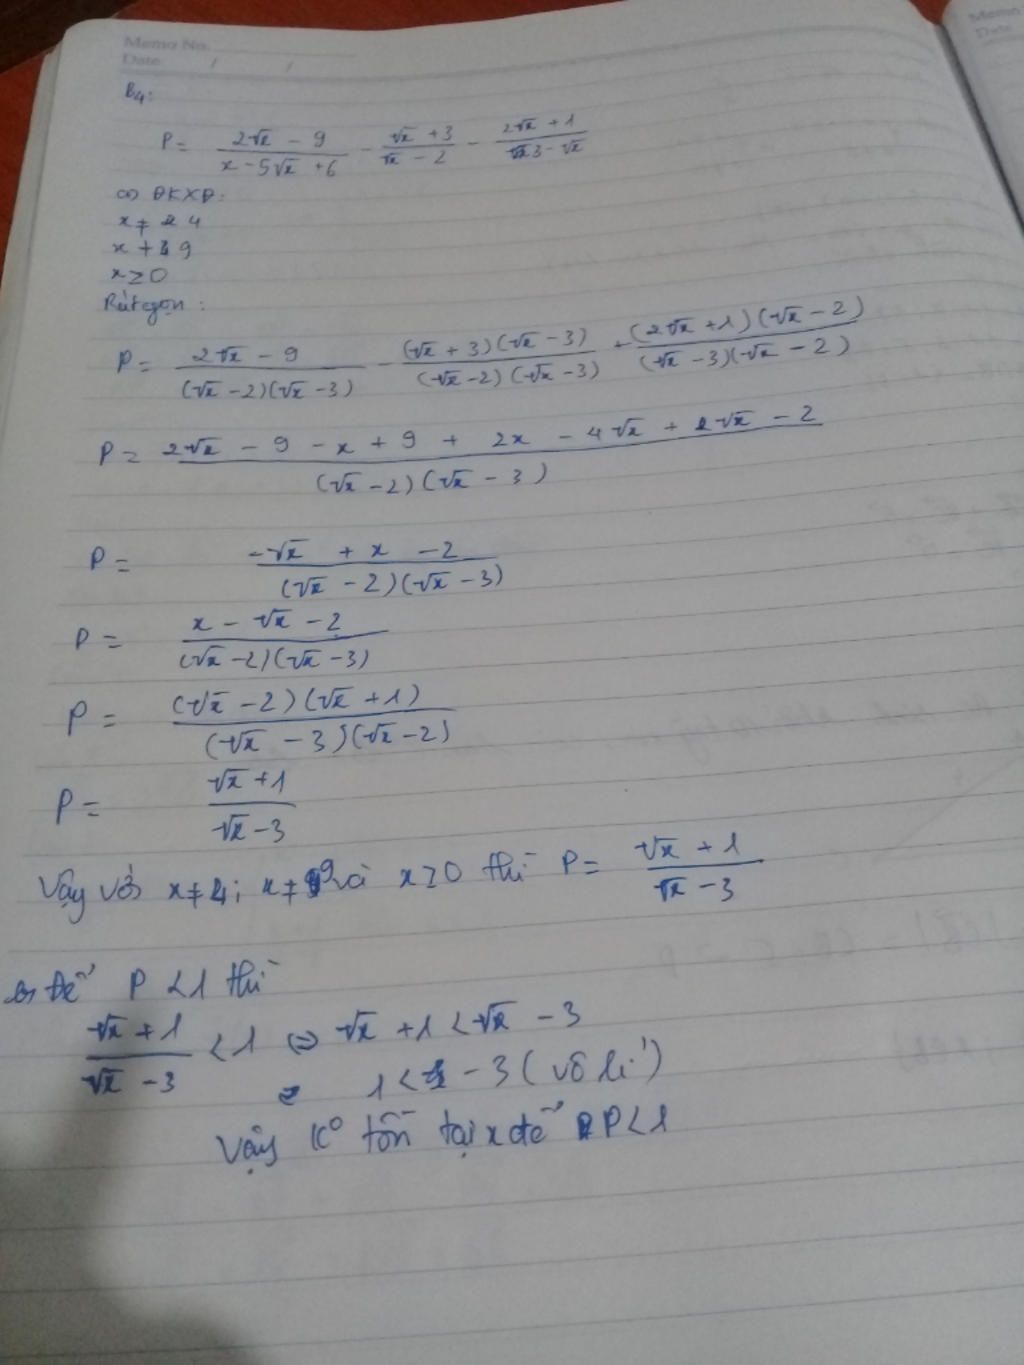 Memo No.
Date / /
B4:
P = (2√x - 9)/(x - 5√x + 6) - (√x + 3)/(√x - 2) - (2√x + 1)/(3 - √x)
a) ĐKXĐ:
x ≠ 4
x ≠ 9
x ≥ 0
Rút gọn:
P = (2√x - 9)/((√x - 2)(√x - 3)) - ((√x + 3)(√x - 3))/((√x - 2)(√x - 3)) + ((2√x + 1)(√x - 2))/((√x - 3)(√x - 2))
P = (2√x - 9 - x + 9 + 2x - 4√x + √x - 2)/((√x - 2)(√x - 3))
P = (-√x + x - 2)/((√x - 2)(√x - 3))
P = (x - √x - 2)/((√x - 2)(√x - 3))
P = ((√x - 2)(√x + 1))/((√x - 3)(√x - 2))
P = (√x + 1)/(√x - 3)
Vậy với x ≠ 4; x ≠ 9 và x ≥ 0 thì P = (√x + 1)/(√x - 3)
b) Để P < 1 thì
(√x + 1)/(√x - 3) < 1 ⇔ √x + 1 < √x - 3
1 < - 3 (vô lí)
Vậy k° tồn tại x để P < 1